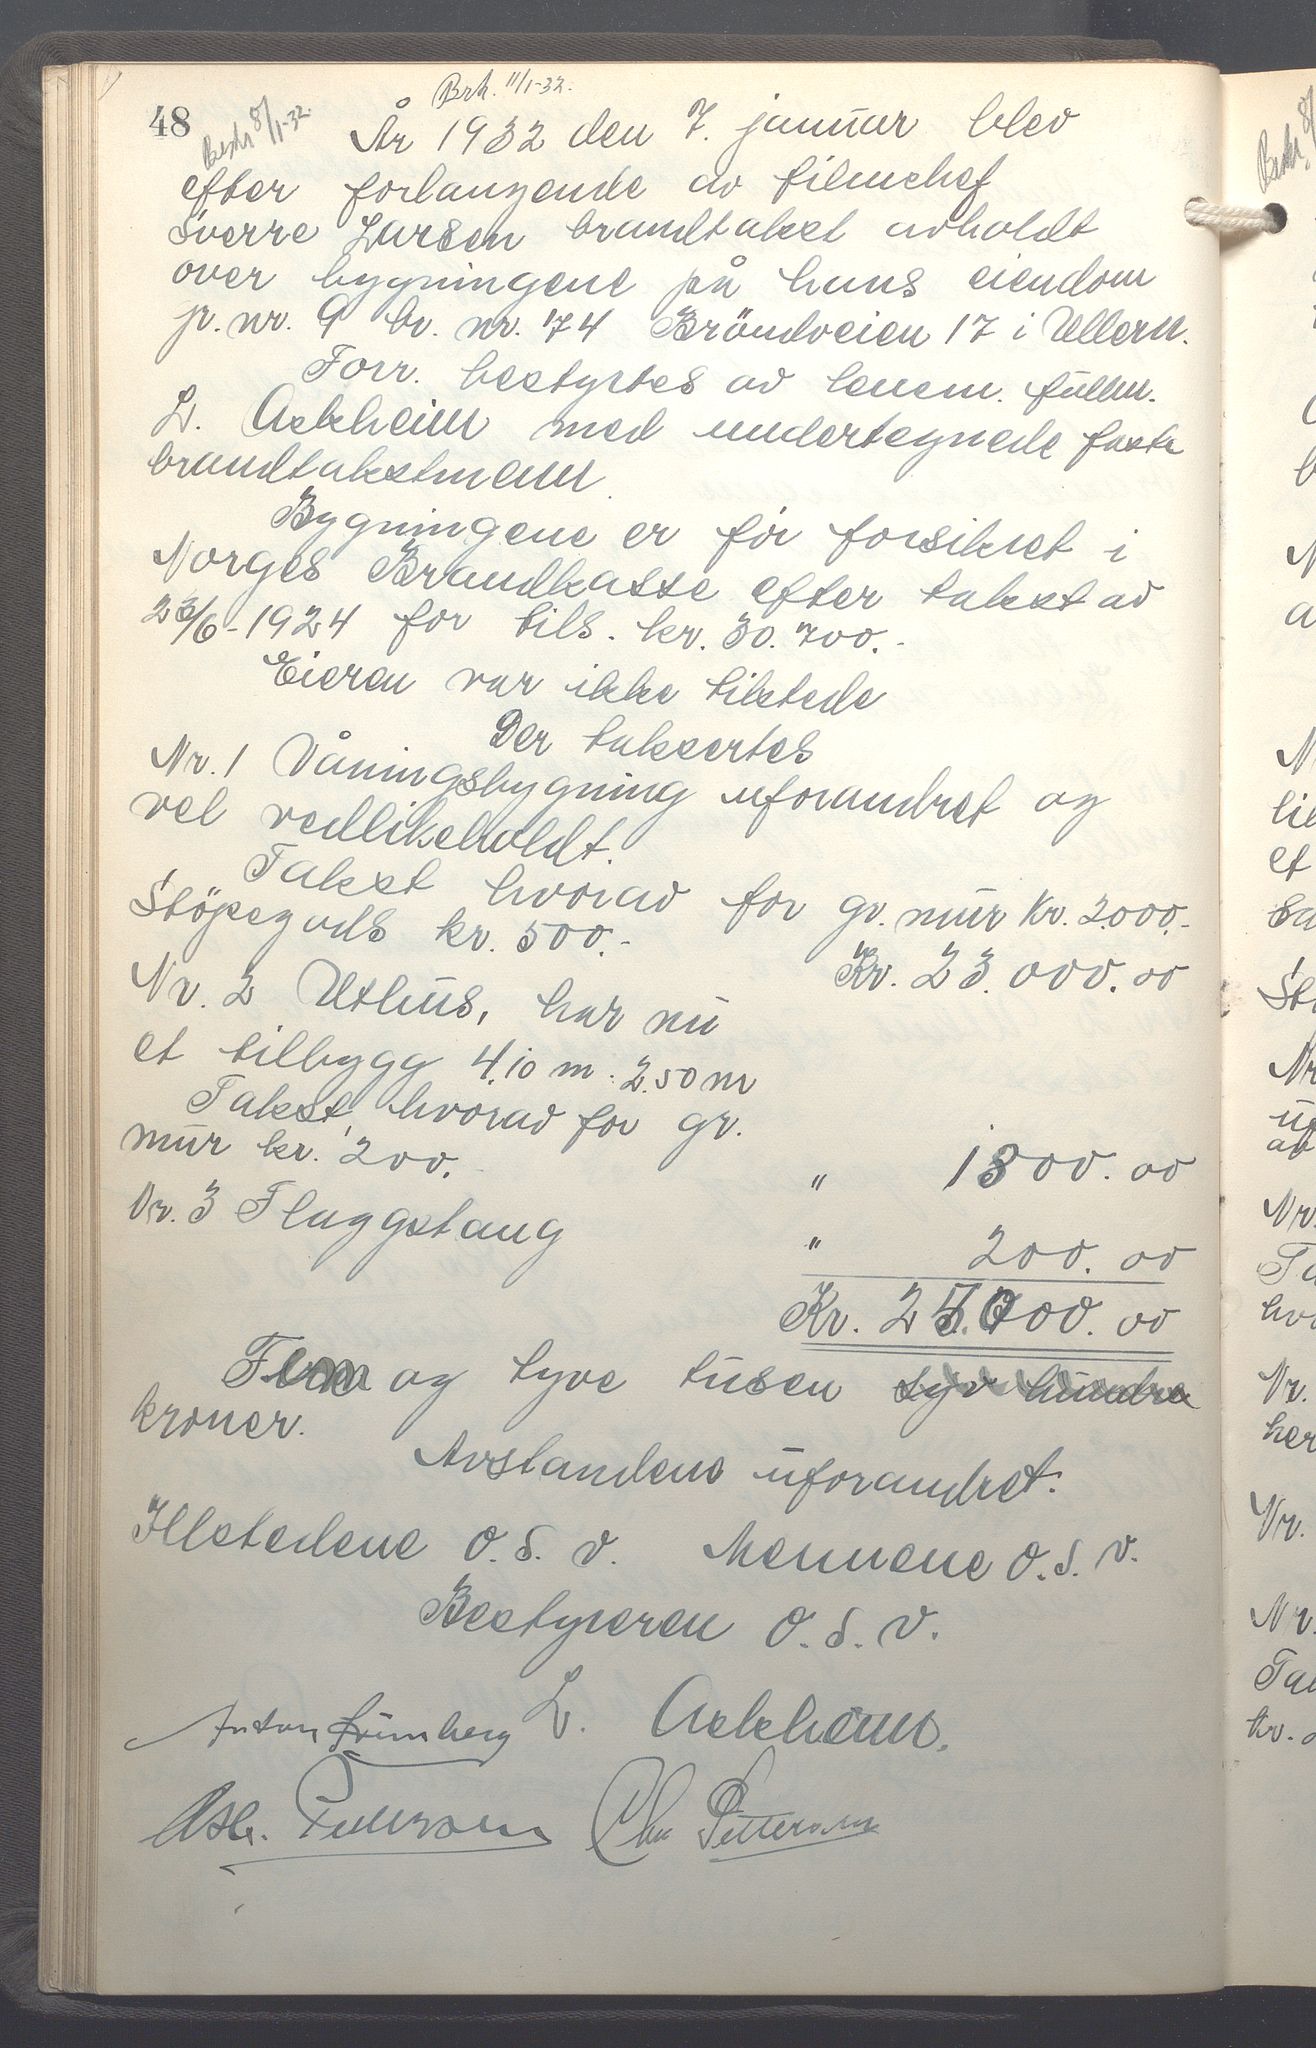 48
Brk. 11/1-32.
Besk 8/1-32.
År 1932 den 7. januar blev
efter forlangende av filmchef
Sverre Larsen brandtakst avholdt
over bygningene på hans eiendom
gr. nr. 9 br. nr. 74 Bröndveien 17 i Ullern.
Forr. bestyrtes av lensm. fullm.
L. Askheim med undertegnede faste
brandtakstmenn.
Bygningene er før forsikret i
Norges Brandkasse efter takst av
23/6-1924 for tils. kr. 30.700.-
Eieren var ikke tilstede
Der taksertes
Nr. 1 Våningsbygning uforandret og
vel vedlikeholdt.
Takst hvorav for gr. mur Kr. 2000.-
Støpegods kr. 500.-
Kr. 23.000.00
Nr. 2 Uthus, har nu
et tilbygg 4.10 m. 2.50 m
Takst, hvorav for gr.
mur kr. 200.-
" 1800.00
Nr. 3 Flaggstang
" 200.00
Kr. 25.000.00
Fem og tyve tusen syv hundre
kroner.
Avstandene uforandret.
Ildstedene o.s.v. Mennene o.s.v.
Bestyreren o.s.v.
L. Askheim.
Anton Grünberg
Pettersen
Chr Pettersen